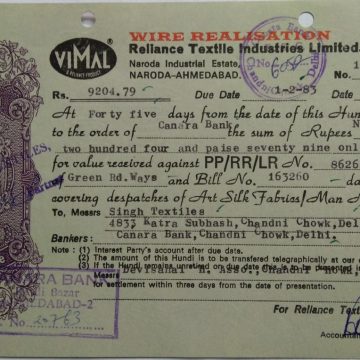 VIMAL
A RELIANCE PRODUCT
WIRE REALISATION
Reliance Textile Industries Limited
Naroda Industrial Estate,
NARODA-AHMEDABAD.
No.
Rs. 9204.79 Due Date 1-2-83 Due
At Forty five days from the date of this Hun
to the order of Canara Bank, the sum of Rupees
two hundred four and paise seventy nine onl
for value received against PP/RR/LR No. 8626
Green Rd.Ways and Bill No. 163260 da
covering despatches of Art Silk Fabrics/Man M
To, Messrs Singh Textiles
4833 Katra Subhash, Chandni Chowk, Delhi
Bankers: Canara Bank, Chandni Chowk, Delhi.
Note : (1) Interest Party's account after due date.
(2) The amount of this Hundi is to be transferred telegraphically at our
(3) If the Hundi remains unretired on due date this is to be presented
Messrs Devisahai
for settlement within three days from the date of presentation.
For Reliance Text
Accountant
Partner
CANARA BANK
Bazar
AHMEDABAD-2
No. 20763